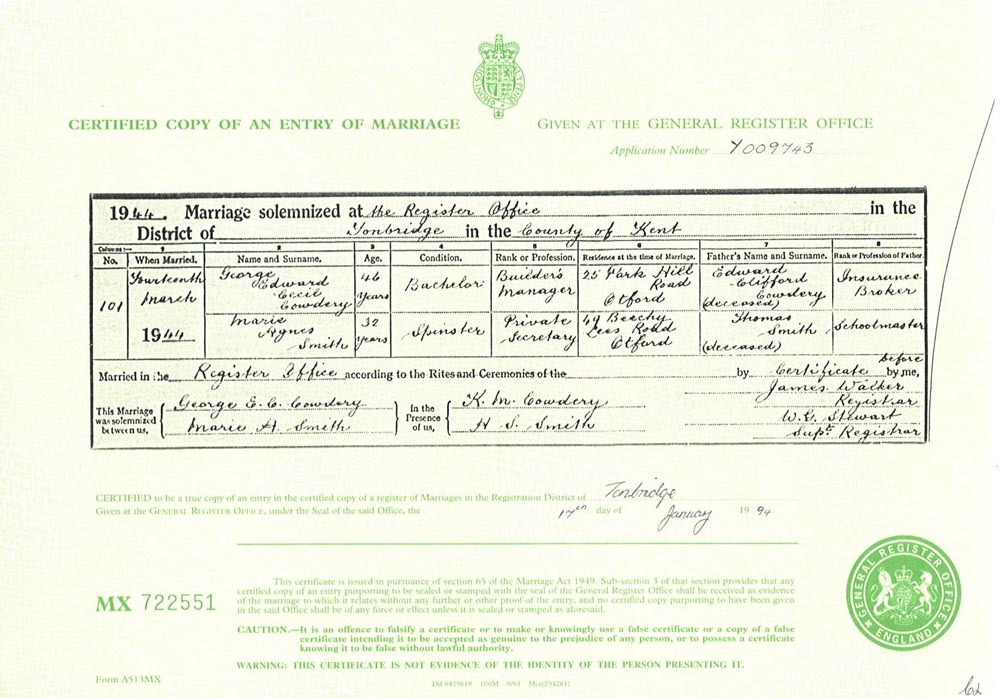 CERTIFIED COPY OF AN ENTRY OF MARRIAGE
GIVEN AT THE GENERAL REGISTER OFFICE
Application Number Y009743
1944. Marriage solemnized at the Register Office in the
District of Tonbridge in the County of Kent
Columns:— 1 2 3 4 5 6 7 8
No. When Married. Name and Surname. Age. Condition. Rank or Profession. Residence at the time of Marriage. Father's Name and Surname. Rank or Profession of Father.
101
Fourteenth
March
1944
George
Edward
Cecil
Cowdery
46
Years
Bachelor
Builder's
Manager
25 Park Hill
Road
Otford
Edward
Clifford
Cowdery
(deceased)
Insurance
Broker
Marie
Agnes
Smith
32
Years
Spinster
Private
Secretary
49 Beechy
Lees Road
Otford
Thomas
Smith
(deceased)
Schoolmaster
Married in the Register Office according to the Rites and Ceremonies of the by Certificate before by me,
This Marriage
was solemnized
between us,
George E. C. Cowdery
Marie A. Smith
In the
Presence
of us,
K. M. Cowdery
H S. Smith
James Walker
Registrar
W.G. Stewart
Supt. Registrar
CERTIFIED to be a true copy of an entry in the certified copy of a register of Marriages in the Registration District of Tonbridge
Given at the GENERAL REGISTER OFFICE, under the Seal of the said Office, the 17th day of January 1994
MX 722551
This certificate is issued in pursuance of section 65 of the Marriage Act 1949. Sub-section 3 of that section provides that any
certified copy of an entry purporting to be sealed or stamped with the seal of the General Register Office shall be received as evidence
of the marriage to which it relates without any further or other proof of the entry, and no certified copy purporting to have been given
in the said Office shall be of any force or effect unless it is sealed or stamped as aforesaid.
CAUTION.—It is an offence to falsify a certificate or to make or knowingly use a false certificate or a copy of a false
certificate intending it to be accepted as genuine to the prejudice of any person, or to possess a certificate
knowing it to be false without lawful authority.
WARNING: THIS CERTIFICATE IS NOT EVIDENCE OF THE IDENTITY OF THE PERSON PRESENTING IT.
GENERAL REGISTER OFFICE
ENGLAND
Form A513MX